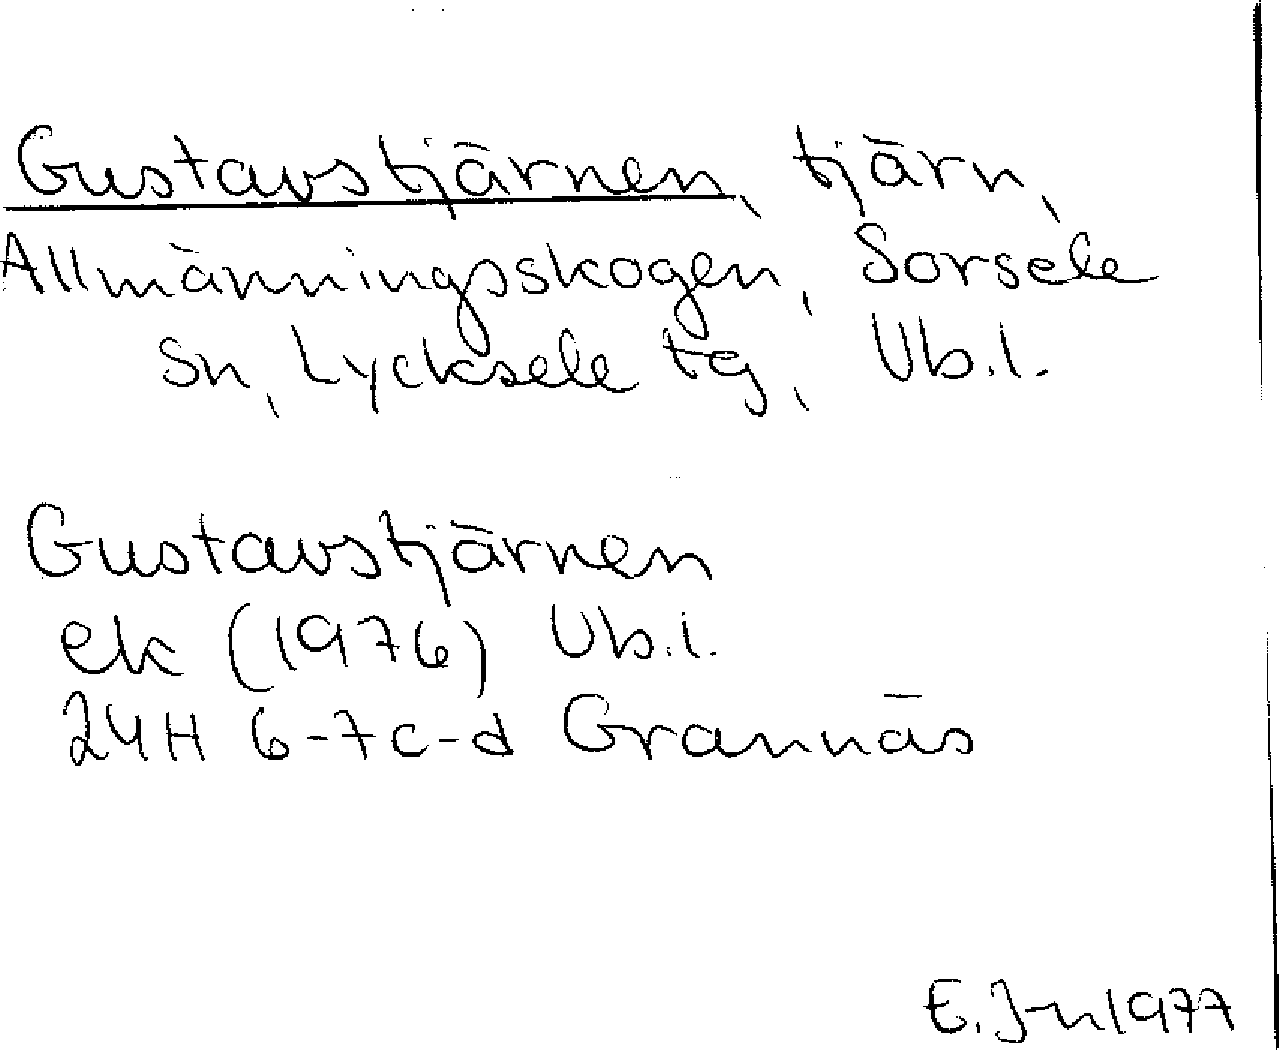 Gustavstjärnen, tjärn,
Allmänningsskogen, Sorsele
sn, Lycksele tg, Vb.l.
Gustavstjärnen
ek (1976) Vb.l.
24H 6-7c-d Grannäs
E. J-n 1977